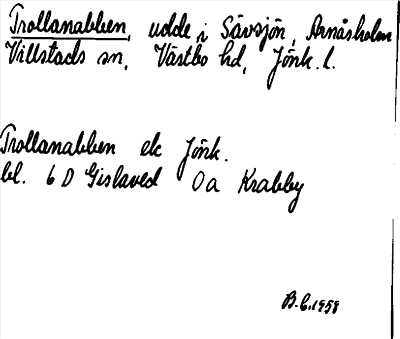 Trollanabben, udde i Sävsjön, Arnåsholm
Villstads sn, Västbo hd, Jönk. l.
Trollanabben ek Jönk.
bl. 6 D Gislaved 0a Krabby
B.C. 1958